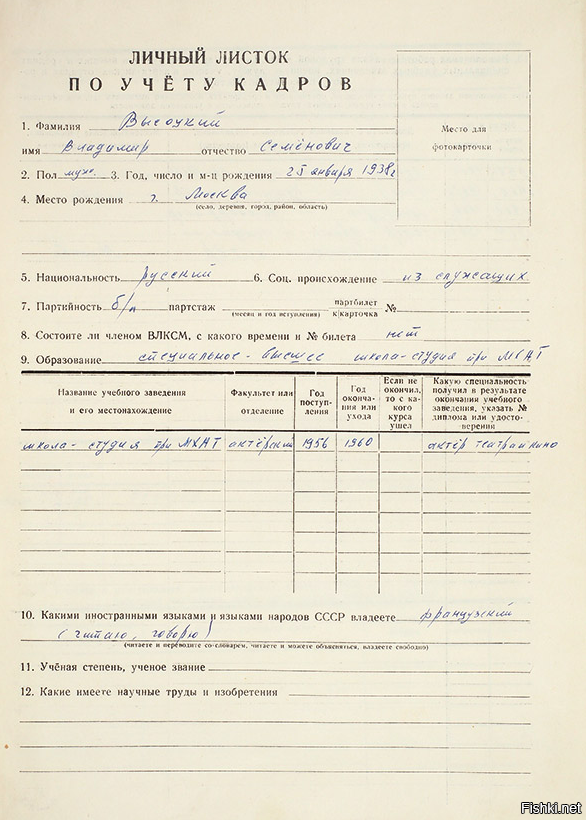 ЛИЧНЫЙ ЛИСТОК
ПО УЧЁТУ КАДРОВ
Место для
фотокарточки
1. Фамилия Высоцкий
имя Владимир отчество Семёнович
2. Пол муж. 3. Год, число и м-ц рождения 25 января 1938г
4. Место рождения г. Москва
(село, деревня, город, район, область)
5. Национальность русский 6. Соц. происхождение из служащих
7. Партийность б/п партстаж (месяц и год вступления) партбилет к/карточка №
8. Состоите ли членом ВЛКСМ, с какого времени и № билета нет
9. Образование специальное-высшее школа-студия при МХАТ
Название учебного заведения и его местонахождение
Факультет или отделение
Год поступ-ления
Год оконча-ния или ухода
Если не окончил, то с ка-кого курса ушел
Какую специальность получил в результате окончания учебного заведения, указать № диплома или удосто-верения
школа-студия при МХАТ актёрский 1956 1960 актёр театра и кино
10. Какими иностранными языками и языками народов СССР владеете французский
(читаю, говорю)
(читаете и переводите со словарем, читаете и можете объясняться, владеете свободно)
11. Учёная степень, ученое звание
12. Какие имеете научные труды и изобретения
Fishki.net